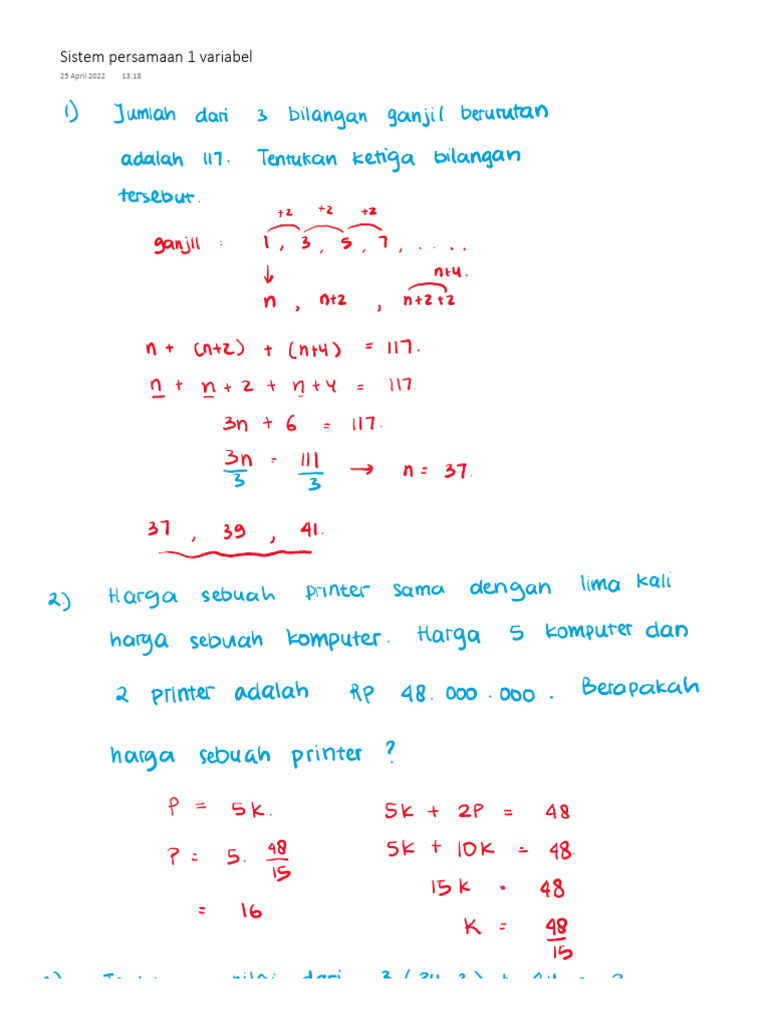 Sistem persamaan 1 variabel
25 April 2022 13:18
1) Jumlah dari 3 bilangan ganjil berurutan
adalah 117. Tentukan ketiga bilangan
tersebut.
+2 +2 +2
ganjil : 1, 3, 5, 7, .....
n+4.
n, n+2, n+2+2
n + (n+2) + (n+4) = 117.
n + n + 2 + n + 4 = 117.
3n + 6 = 117.
3n/3 = 111/3 → n = 37.
37, 39, 41.
2.) Harga sebuah printer sama dengan lima kali
harga sebuah komputer. Harga 5 komputer dan
2 printer adalah RP 48.000.000. Berapakah
harga sebuah printer ?
P = 5k. 5k + 2P = 48
P = 5. 48/15 5k + 10k = 48.
15k = 48
= 16 K = 48/15